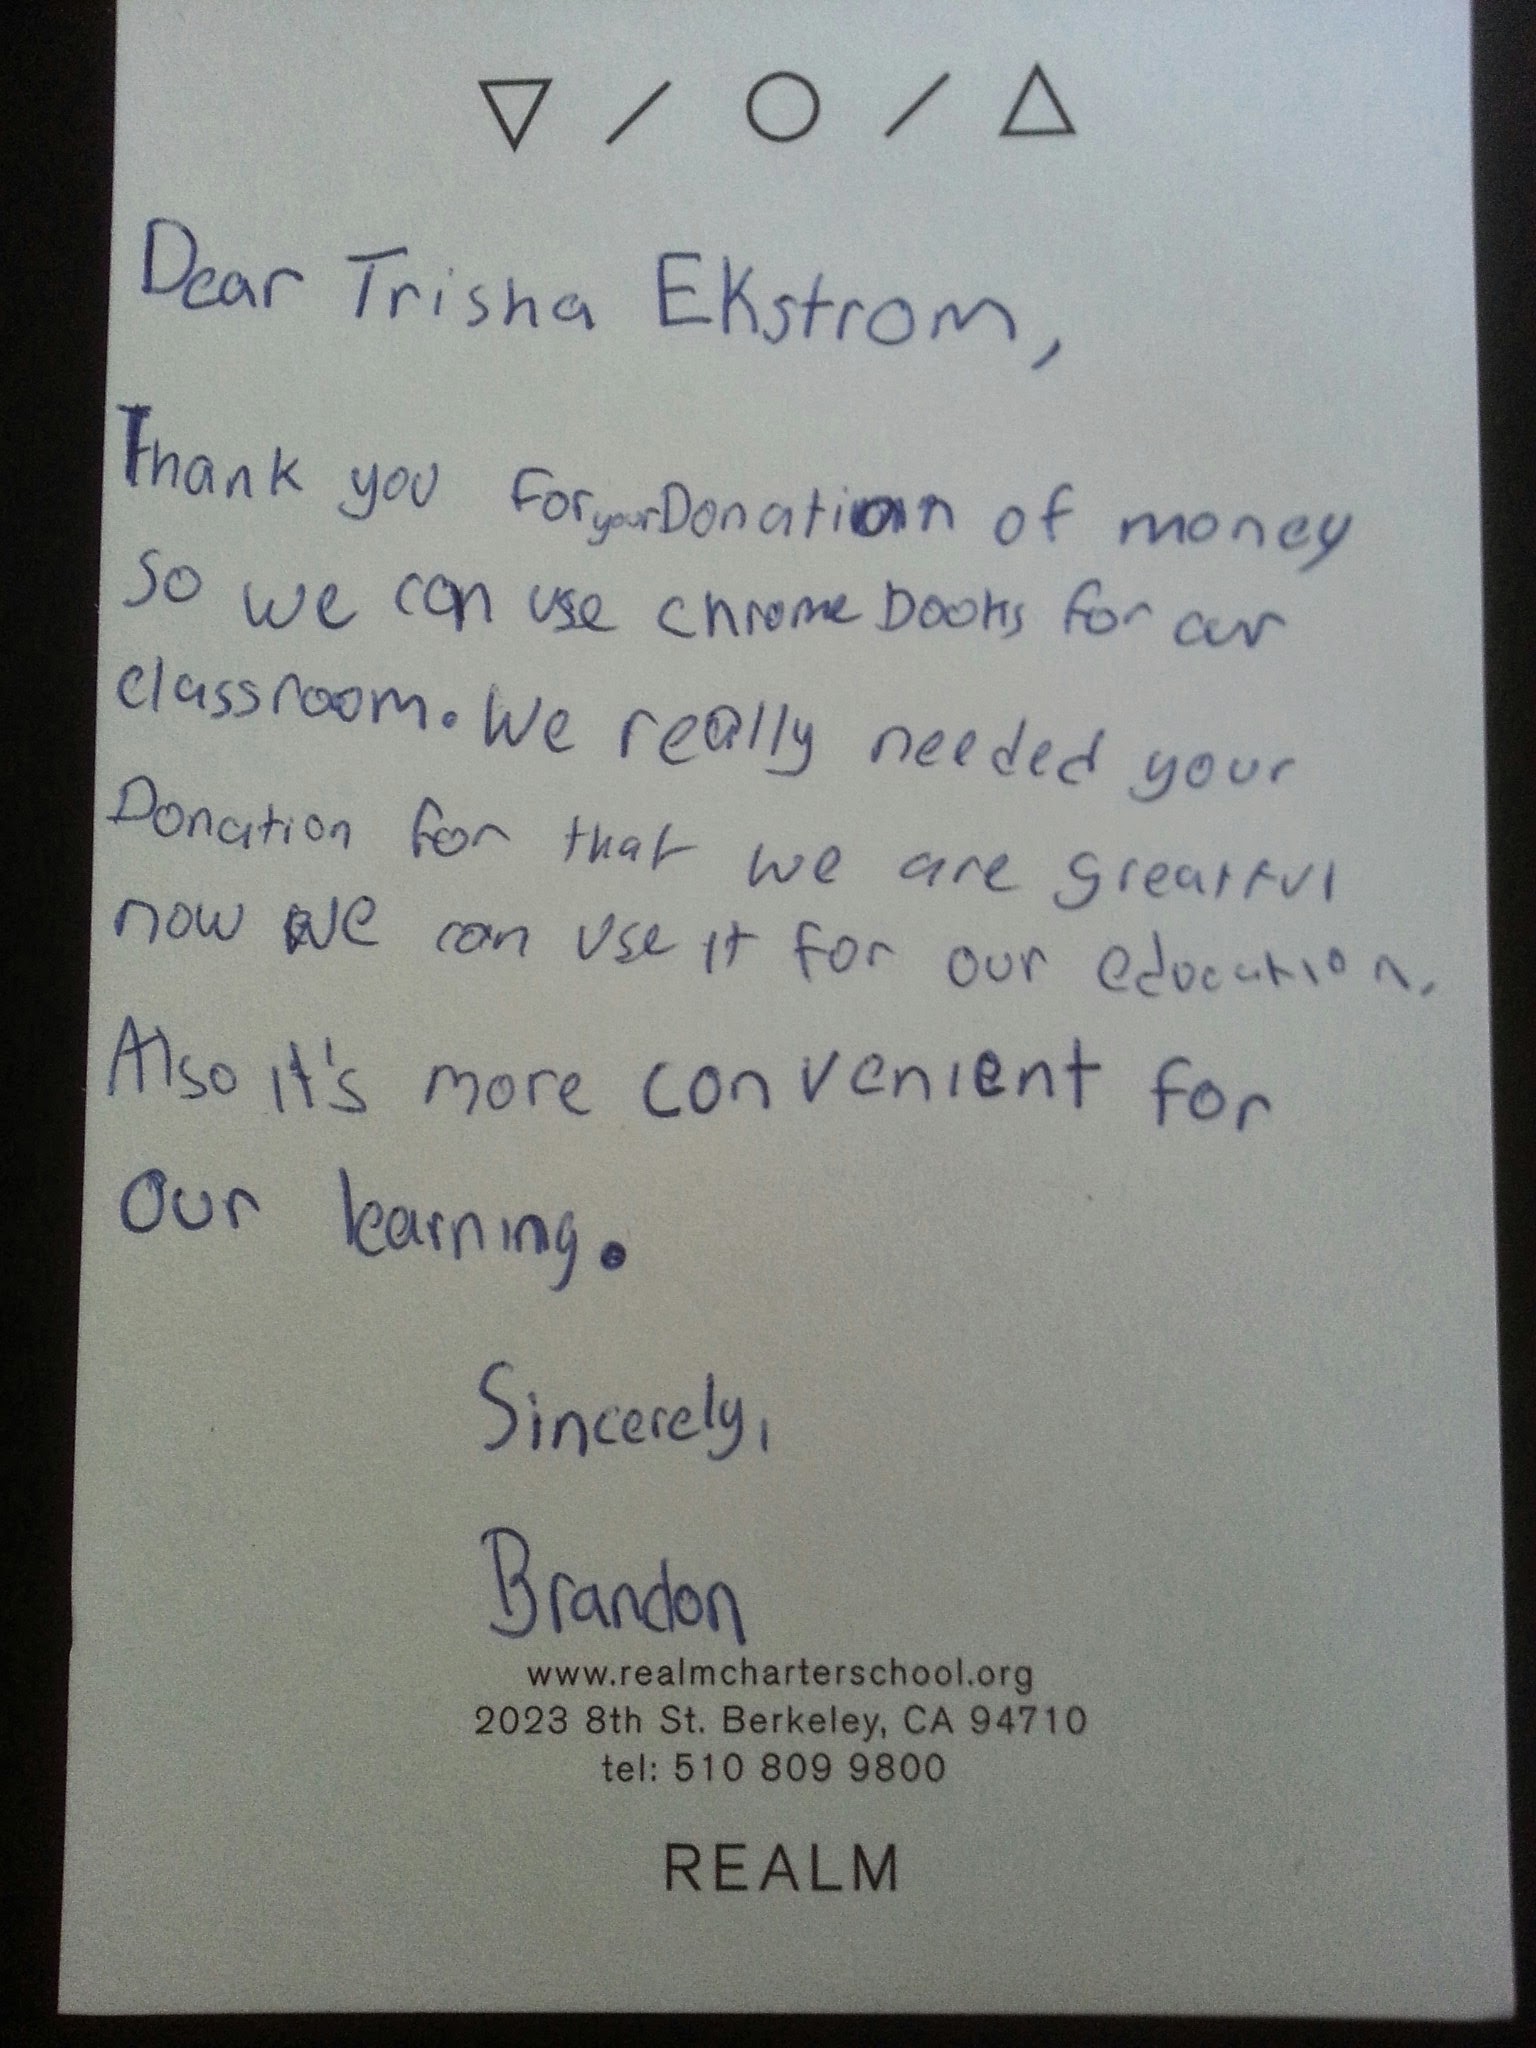 Dear Trisha Ekstrom,
Thank you for your Donation of money
so we can use chrome books for our
classroom. We really needed your
Donation for that we are greatful
now we can use it for our education.
Also it's more convenient for
our learning.
Sincerely,
Brandon
www.realmcharterschool.org
2023 8th St. Berkeley, CA 94710
tel: 510 809 9800
REALM